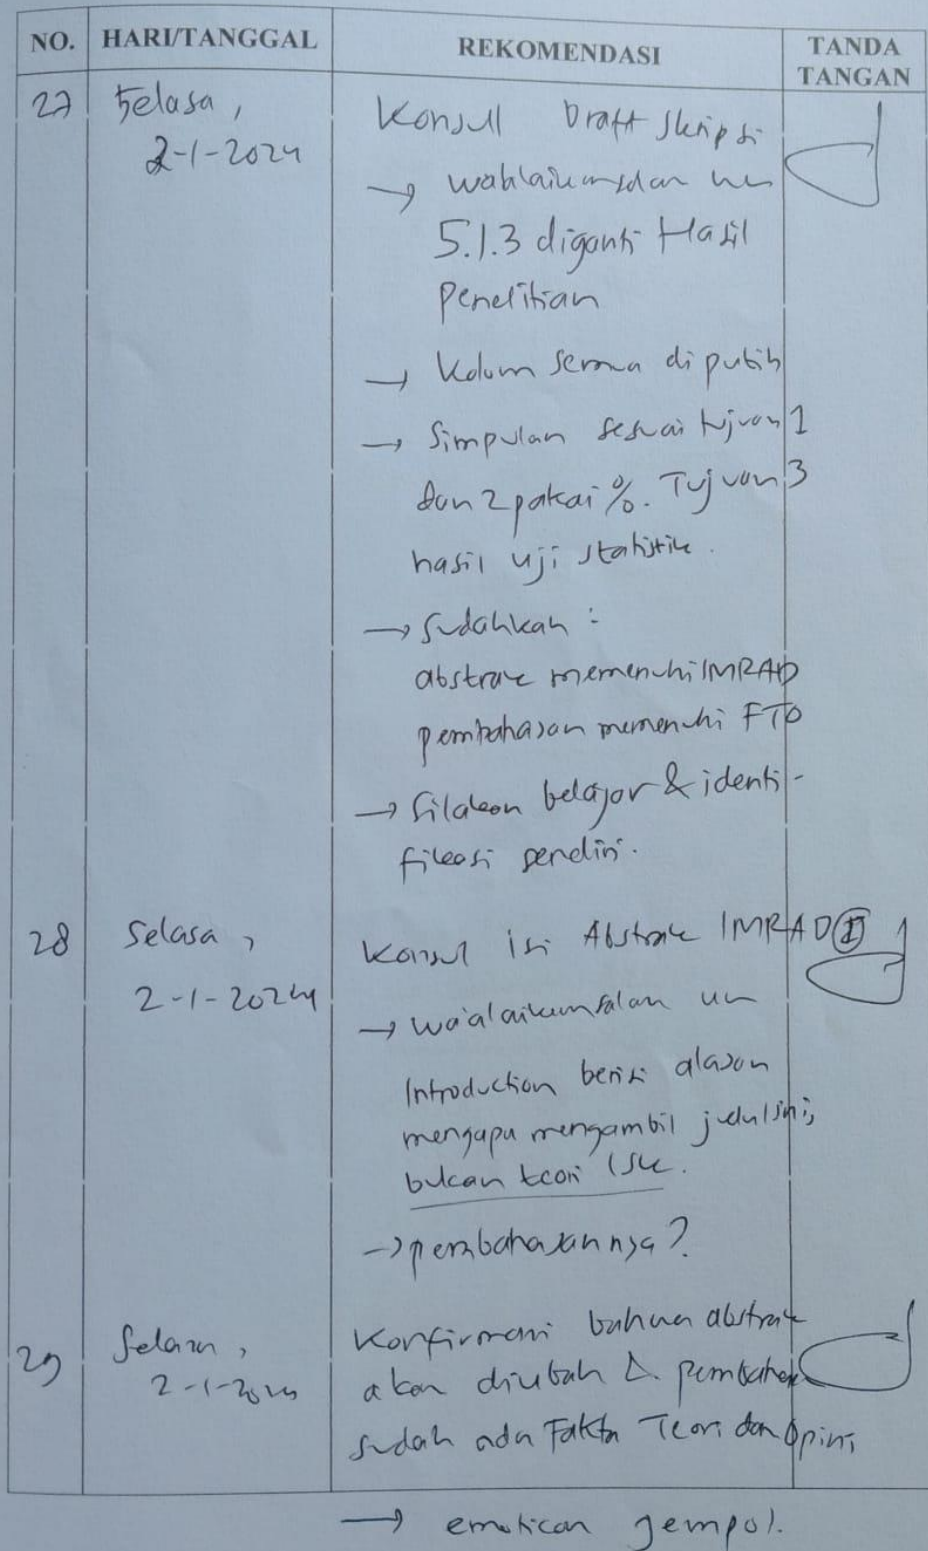 NO. HARI/TANGGAL REKOMENDASI TANDA TANGAN
27 Selasa, Konsul Draft Skripsi
2-1-2024 → wa'alaikumsalam
5.1.3 diganti Hasil
Penelitian
→ Kolom semua diputih
→ Simpulan sesuai tujuan 1
dan 2 pakai %. Tujuan 3
hasil uji statistik.
→ Sudahkah :
abstrak memenuhi IMRAD
pembahasan memenuhi FTO
→ Silakan belajar & identi-
fikasi sendiri.
28 Selasa, Konsul isi Abstrak IMRAD
2-1-2024 → wa'alaikumsalam
Introduction berisi alasan
mengapa mengambil judul ini,
bukan teori ISK.
→ pembahasannya?
29 Selasa, Konfirmasi bahwa abstrak
2-1-2024 akan diubah & pembahas
sudah ada Fakta Teori dan Opini
→ emoticon jempol.